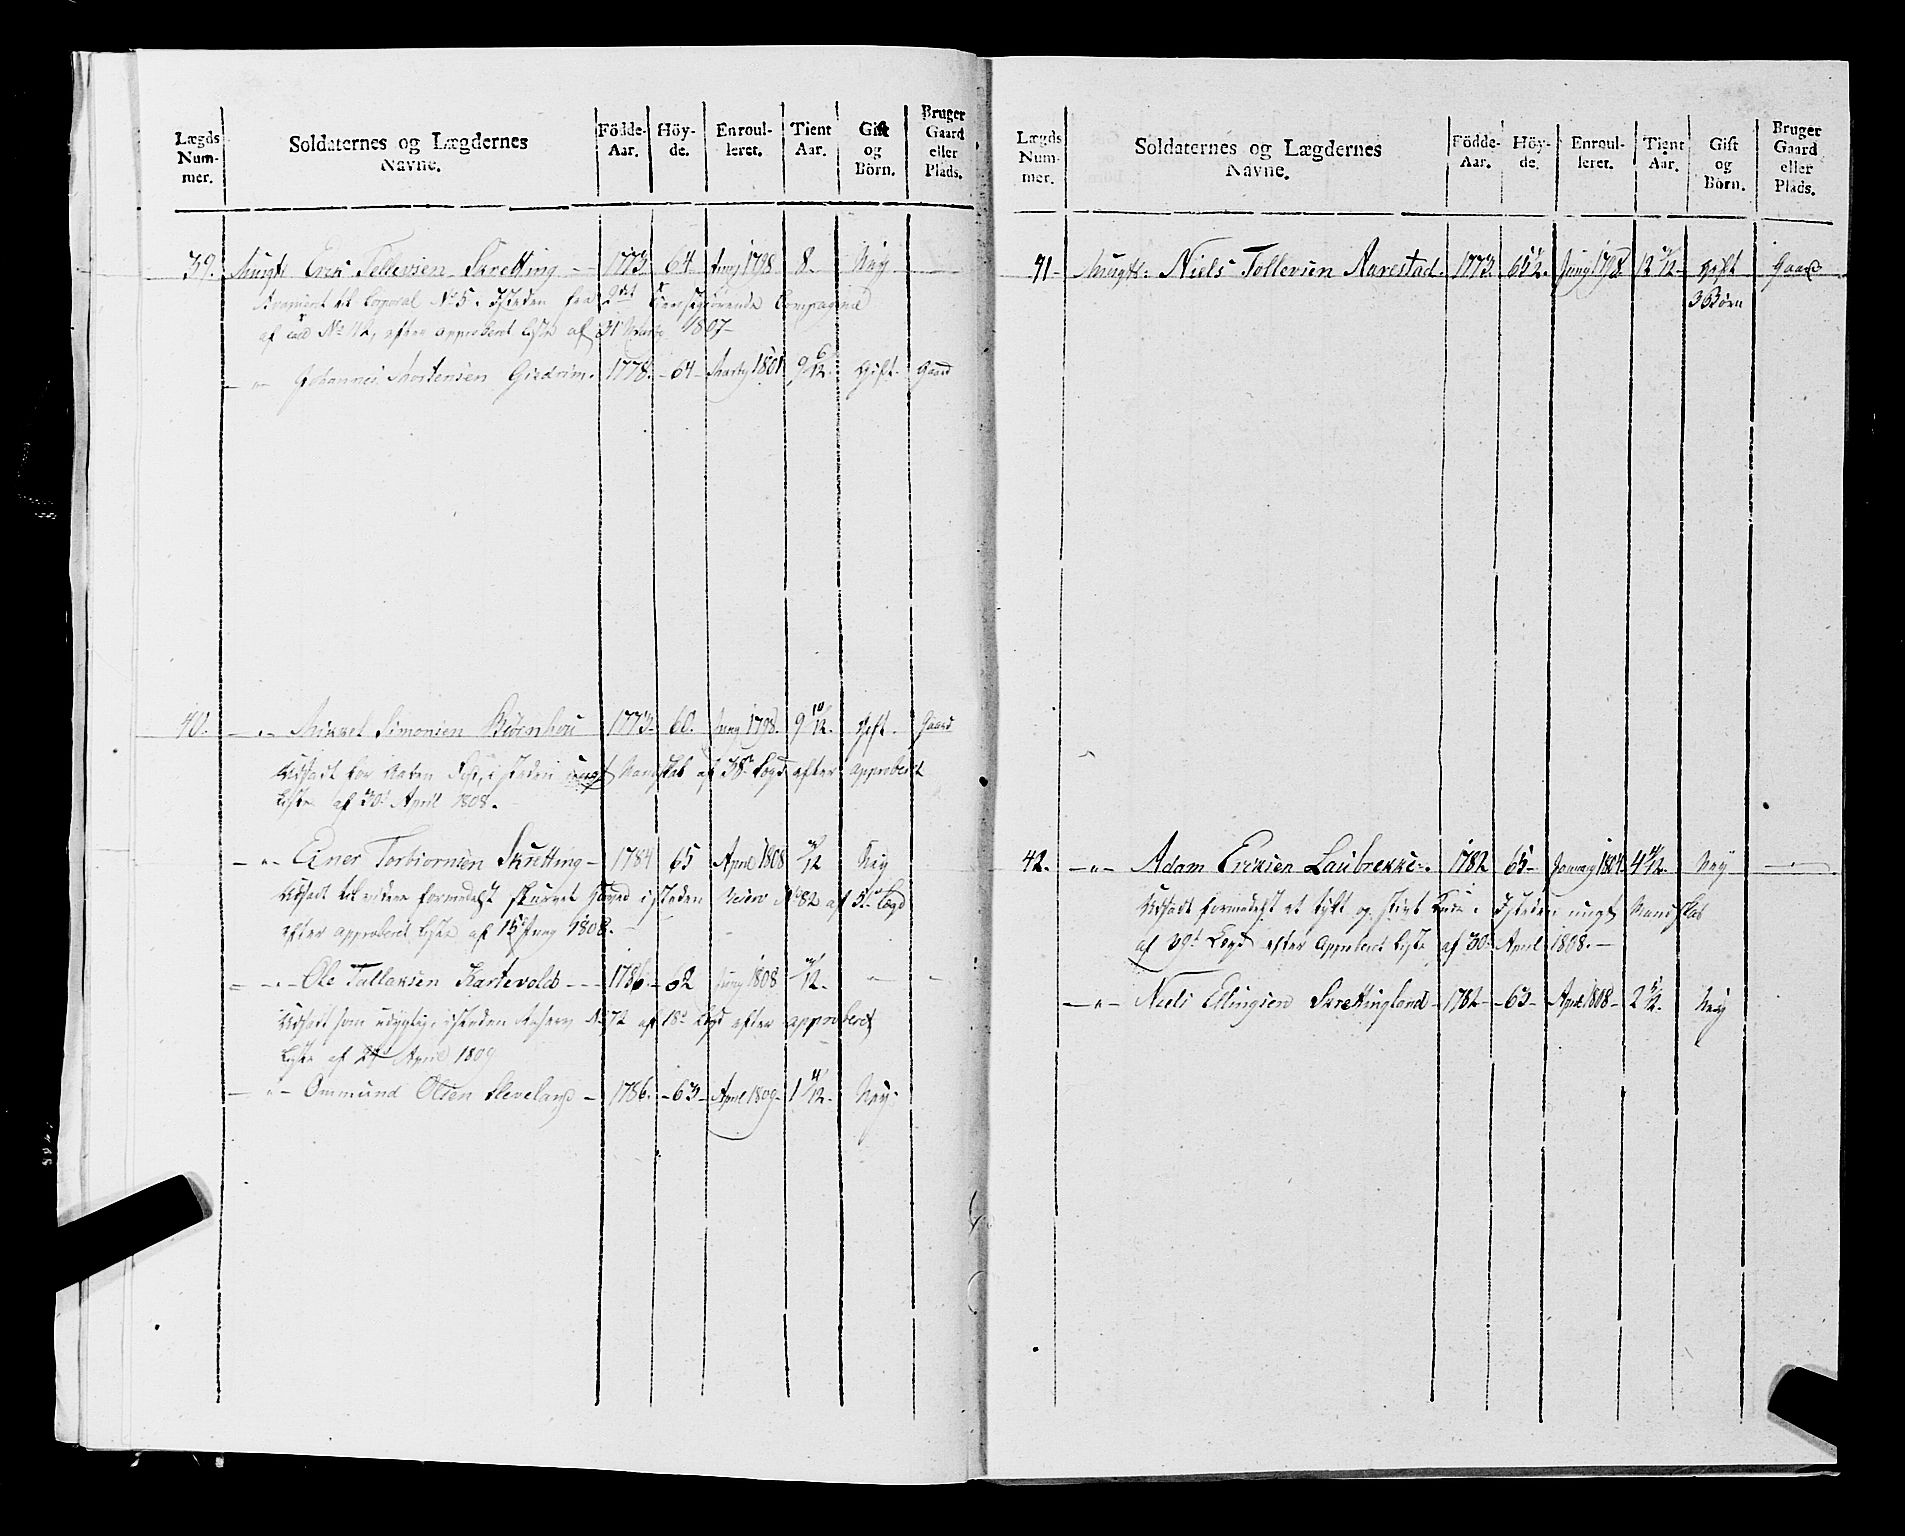 Lægds Num- mer. Soldaternes og Lægdernes Navne. Födde- Aar. Höy- de. Enroul- leret. Tient Aar. Gift og Börn. Bruger Gaard eller Plads.
39. Musqt: Erik Tollevsen Skretting 1773. 64 Juny 1798 8. Ney
Avanceret til Corporal No 5. Isteden fra 2det
af No 42, efter approberet Liste af 31 1807
" Johannes Mortensen Giedrim. 1778. 64 Marty 1801 9 6/12. Gift. Gaard
40. " Mikkel Simonsen 1773. 60. Juny 1798. 9 10/12. Gift. Gaard
Udsadt for isteden ungt Mandskab af 38te Lægd efter approberet
Liste af 30t April 1808.
" Einer Torbiornsen Skretting 1784 65 April 1808 /12 Ney
Udsadt formedelst skurvet Hoved isteden No 82 af 5te Lægd
efter approberet Liste af 15t Juny 1808.
" Ole Tallaksen Kartevold 1786. 62 Juny 1808 /12. "
Udsadt som udygtig, isteden No 72 af 18t Lægd efter approberet
Liste af 24t April 1809
" Ommund Olsen Kleveland 1786. 63 April 1809 1 11/12. Ney
Lægds Num- mer. Soldaternes og Lægdernes Navne. Födde- Aar. Höy- de. Enroul- leret. Tient Aar. Gift og Börn. Bruger Gaard eller Plads.
41 Musqt: Niels Tollevsen Aarestad. 1773. 65 1/2. Juny 1798 12 /12 gift Gaard
3 Börn
42. " Adam Eriksen Laubrekke 1782 65 January 1804 4 /12. Ney "
Udsadt formedelst et tykt og stivt Knæ. Isteden ungt Mandskab
af 39t Lægd efter approberet Liste af 30t April 1808.
" Niels Elingsen Skrettingland 1782 63 April 1808 2 /12. Ney